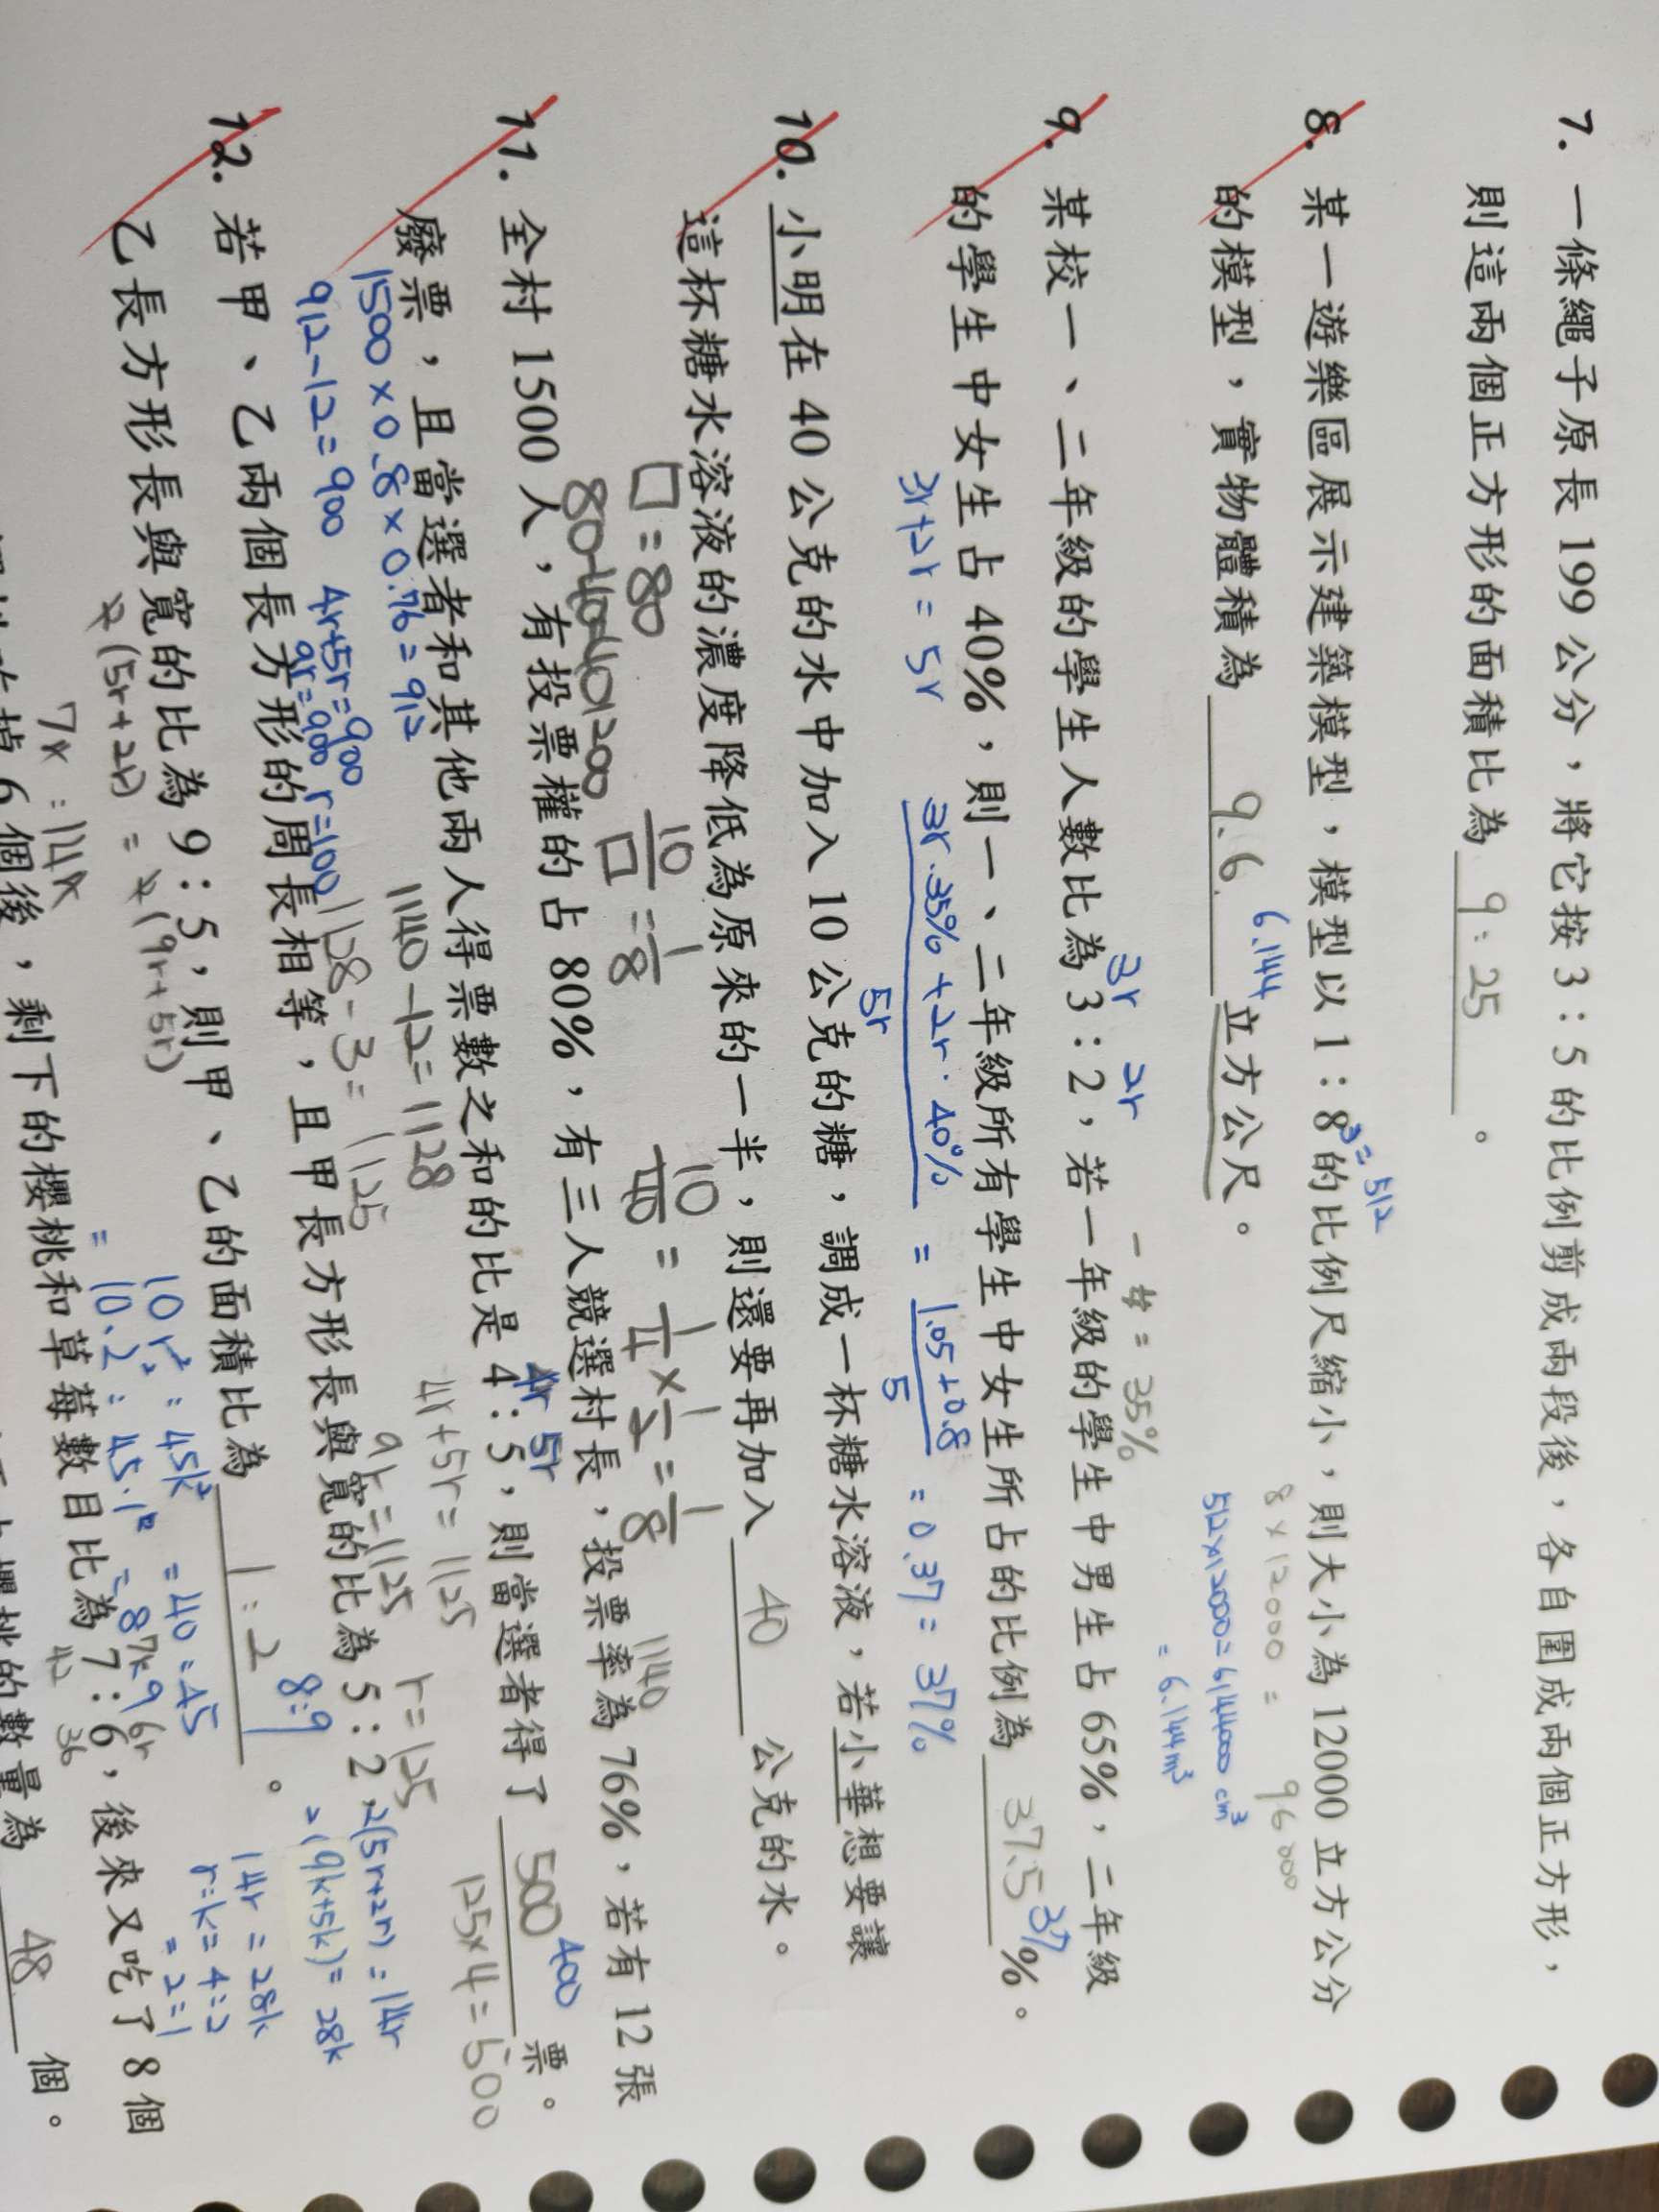 7. 一條繩子原長 199 公分，將它按 3：5 的比例剪成兩段後，各自圍成兩個正方形，
則這兩個正方形的面積比為 9：25 。
³=512
8. 某一遊樂區展示建築模型，模型以 1：8 的比例尺縮小，則大小為 12000 立方公分
8×12000= 96000
6.144
512×12000=6144000 cm³
的模型，實物體積為 9.6. 立方公尺。
=6.144m³
一女=35%
3r 2r
9. 某校一、二年級的學生人數比為 3：2，若一年級的學生中男生占 65%，二年級
37
的學生中女生占 40%，則一、二年級所有學生中女生所占的比例為 37.5 %。
3r+2r=5r
3r·35%+2r·40%
5r
=
1.05+0.8
5
=0.37=37%
10. 小明在 40 公克的水中加入 10 公克的糖，調成一杯糖水溶液，若小華想要讓
這杯糖水溶液的濃度降低為原來的一半，則還要再加入 40 公克的水。
□=80
10/□=1/8
=1/4×1/2=1/8
1140
11. 全村 1500 人，有投票權的占 80%，有三人競選村長，投票率為 76%，若有 12 張
4r 5r
400
廢票，且當選者和其他兩人得票數之和的比是 4：5，則當選者得了 500 票。
1500×0.8×0.76=912
1140-12=1128
4r+5r=1125
125×4=500
912-12=900
4r+5r=900
9r=900 r=100
1128-3=1125
9r=1125
r=125
12. 若甲、乙兩個長方形的周長相等，且甲長方形長與寬的比為 5：2，
2(5r+2r)=14r
2(9k+5k)=28k
8:9
14r=28k
r:k=4:2
=2:1
乙長方形長與寬的比為 9：5，則甲、乙的面積比為 1：2 。
(5r+2r)=
(9r+5r)
10r²:45k²
=40:45
=10·2²:45·1²
=8:9
7k 6r
7x:14k
6 個後，剩下的櫻桃和草莓數目比為 7：6，後來又吃了 8 個
42 36
數量為 48 個。